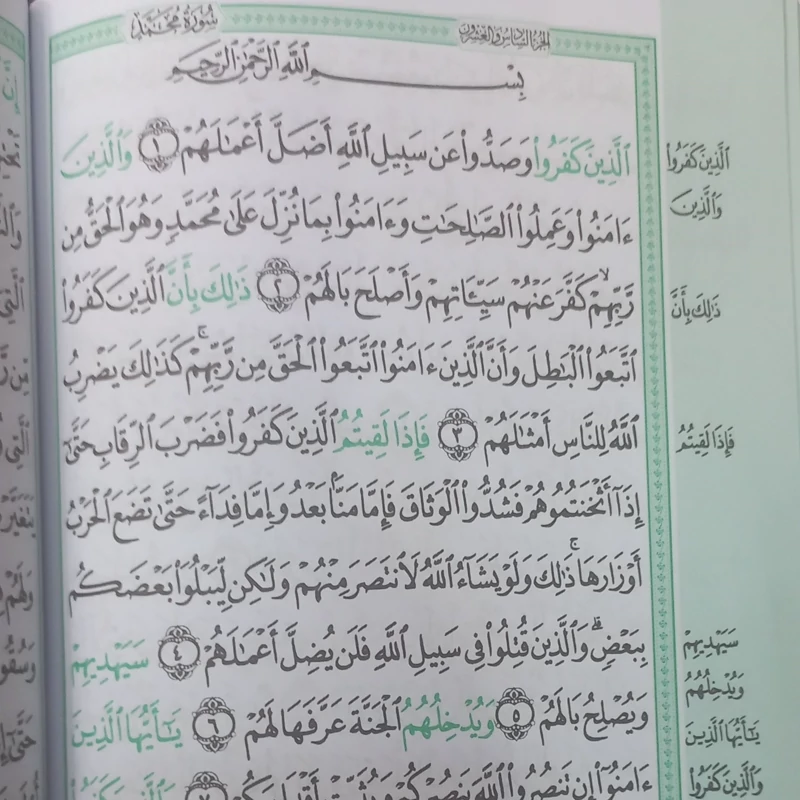 سُورَةُ مُحَمَّد
الجزء السادس والعشرون
بِسْمِ ٱللَّهِ ٱلرَّحْمَٰنِ ٱلرَّحِيمِ
ٱلَّذِينَ كَفَرُوا۟ وَصَدُّوا۟ عَن سَبِيلِ ٱللَّهِ أَضَلَّ أَعْمَٰلَهُمْ ١ وَٱلَّذِينَ
ءَامَنُوا۟ وَعَمِلُوا۟ ٱلصَّٰلِحَٰتِ وَءَامَنُوا۟ بِمَا نُزِّلَ عَلَىٰ مُحَمَّدٍ وَهُوَ ٱلْحَقُّ مِن
رَّبِّهِمْ ۙ كَفَّرَ عَنْهُمْ سَيِّـَٔاتِهِمْ وَأَصْلَحَ بَالَهُمْ ٢ ذَٰلِكَ بِأَنَّ ٱلَّذِينَ كَفَرُوا۟
ٱتَّبَعُوا۟ ٱلْبَٰطِلَ وَأَنَّ ٱلَّذِينَ ءَامَنُوا۟ ٱتَّبَعُوا۟ ٱلْحَقَّ مِن رَّبِّهِمْ ۚ كَذَٰلِكَ يَضْرِبُ
ٱللَّهُ لِلنَّاسِ أَمْثَٰلَهُمْ ٣ فَإِذَا لَقِيتُمُ ٱلَّذِينَ كَفَرُوا۟ فَضَرْبَ ٱلرِّقَابِ حَتَّىٰٓ
إِذَآ أَثْخَنتُمُوهُمْ فَشُدُّوا۟ ٱلْوَثَاقَ فَإِمَّا مَنًّۢا بَعْدُ وَإِمَّا فِدَآءً حَتَّىٰ تَضَعَ ٱلْحَرْبُ
أَوْزَارَهَا ۚ ذَٰلِكَ وَلَوْ يَشَآءُ ٱللَّهُ لَٱنتَصَرَ مِنْهُمْ وَلَٰكِن لِّيَبْلُوَا۟ بَعْضَكُم
بِبَعْضٍ ۗ وَٱلَّذِينَ قُتِلُوا۟ فِى سَبِيلِ ٱللَّهِ فَلَن يُضِلَّ أَعْمَٰلَهُمْ ٤ سَيَهْدِيهِمْ
وَيُصْلِحُ بَالَهُمْ ٥ وَيُدْخِلُهُمُ ٱلْجَنَّةَ عَرَّفَهَا لَهُمْ ٦ يَٰٓأَيُّهَا ٱلَّذِينَ
ءَامَنُوٓا۟ إِن تَنصُرُوا۟ ٱللَّهَ يَنصُرْكُمْ وَيُثَبِّتْ أَقْدَامَكُمْ ٧ وَٱلَّذِينَ كَفَرُوا۟
ٱلَّذِينَ كَفَرُوا۟
وَٱلَّذِينَ
ذَٰلِكَ بِأَنَّ
فَإِذَا لَقِيتُمُ
سَيَهْدِيهِمْ
وَيُدْخِلُهُمُ
يَٰٓأَيُّهَا ٱلَّذِينَ
وَٱلَّذِينَ كَفَرُوا۟